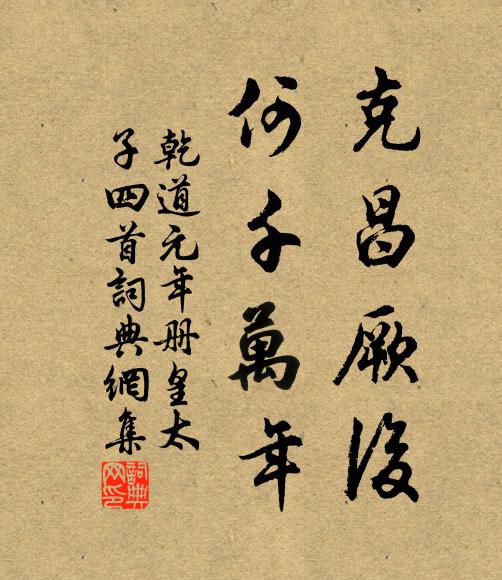 克昌厥後
何千萬年
乾道元年册皇太
子四首詞典網集
詞典網印